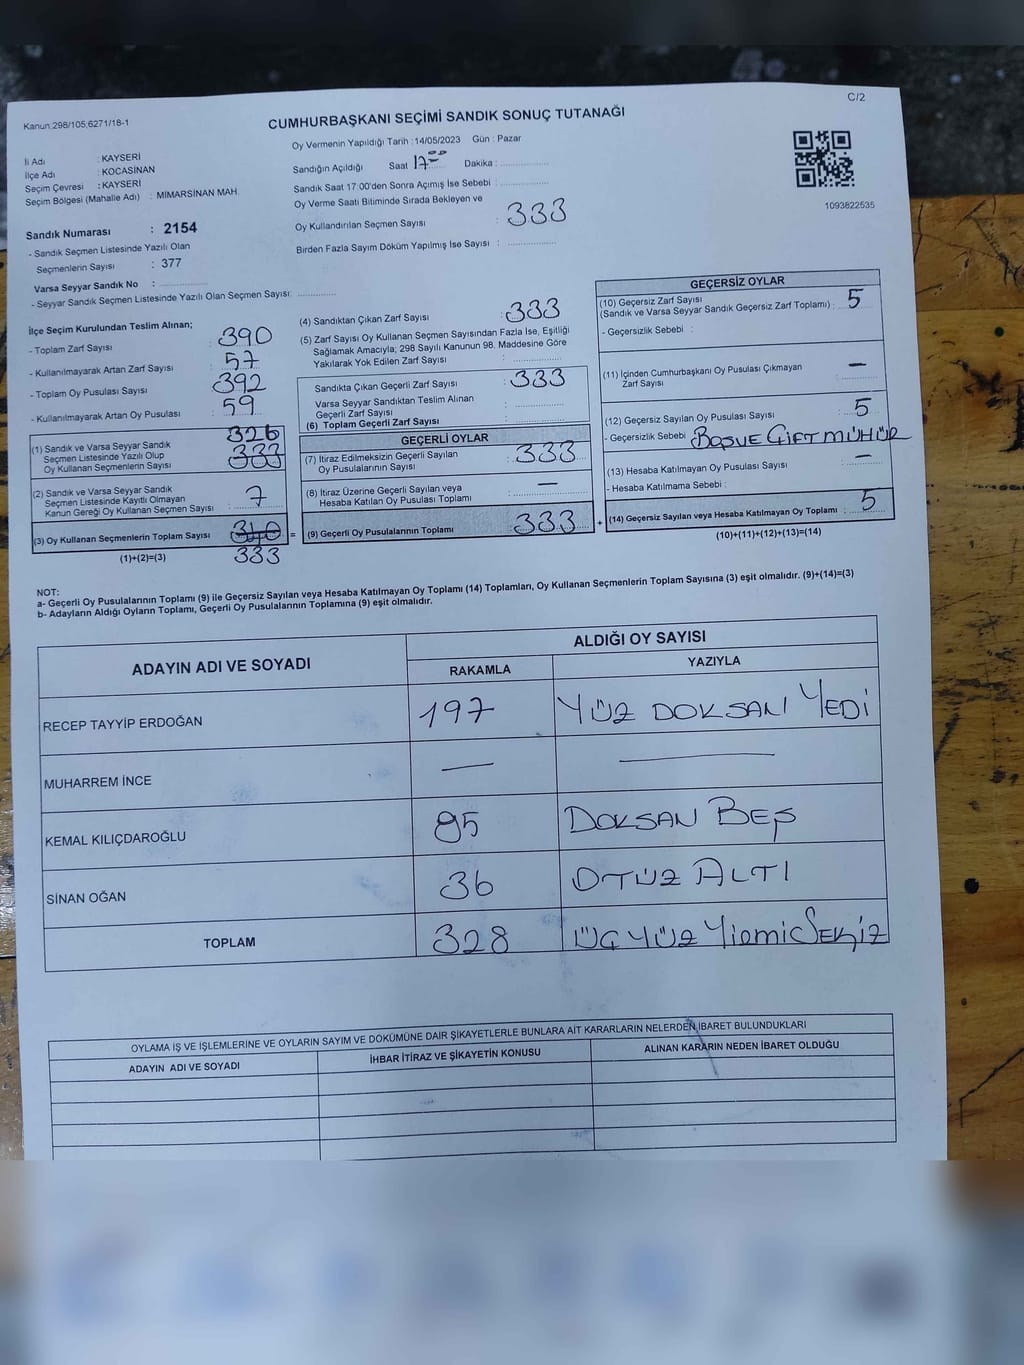 C/2
Kanun:298/105;6271/18-1
CUMHURBAŞKANI SEÇİMİ SANDIK SONUÇ TUTANAĞI
İl Adı : KAYSERİ
İlçe Adı : KOCASİNAN
Seçim Çevresi : KAYSERİ
Seçim Bölgesi (Mahalle Adı) : MİMARSİNAN MAH.
Sandık Numarası : 2154
- Sandık Seçmen Listesinde Yazılı Olan
Seçmenlerin Sayısı : 377
Varsa Seyyar Sandık No :
- Seyyar Sandık Seçmen Listesinde Yazılı Olan Seçmen Sayısı:
Oy Vermenin Yapıldığı Tarih : 14/05/2023 Gün : Pazar
Sandığın Açıldığı Saat 17:00 Dakika :
Sandık Saat 17:00'den Sonra Açımış İse Sebebi :
Oy Verme Saati Bitiminde Sırada Bekleyen ve
Oy Kullandırılan Seçmen Sayısı : 333
Birden Fazla Sayım Döküm Yapılmış İse Sayısı :
1093822535
İlçe Seçim Kurulundan Teslim Alınan;
- Toplam Zarf Sayısı : 390
- Kullanılmayarak Artan Zarf Sayısı : 57
- Toplam Oy Pusulası Sayısı : 392
- Kullanılmayarak Artan Oy Pusulası : 59
326
(1) Sandık ve Varsa Seyyar Sandık
Seçmen Listesinde Yazılı Olup
Oy Kullanan Seçmenlerin Sayısı 333
(2) Sandık ve Varsa Seyyar Sandık
Seçmen Listesinde Kayıtlı Olmayan
Kanun Gereği Oy Kullanan Seçmen Sayısı : 7
(3) Oy Kullanan Seçmenlerin Toplam Sayısı 340 =
(1)+(2)=(3) 333
(4) Sandıktan Çıkan Zarf Sayısı : 333
(5) Zarf Sayısı Oy Kullanan Seçmen Sayısından Fazla İse, Eşitliği
Sağlamak Amacıyla; 298 Sayılı Kanunun 98. Maddesine Göre
Yakılarak Yok Edilen Zarf Sayısı :
Sandıkta Çıkan Geçerli Zarf Sayısı : 333
Varsa Seyyar Sandıktan Teslim Alınan
Geçerli Zarf Sayısı :
(6) Toplam Geçerli Zarf Sayısı :
GEÇERLİ OYLAR
(7) İtiraz Edilmeksizin Geçerli Sayılan
Oy Pusulalarının Sayısı : 333
(8) İtiraz Üzerine Geçerli Sayılan veya
Hesaba Katılan Oy Pusulası Toplamı : —
(9) Geçerli Oy Pusulalarının Toplamı : 333 +
GEÇERSİZ OYLAR
(10) Geçersiz Zarf Sayısı
(Sandık ve Varsa Seyyar Sandık Geçersiz Zarf Toplamı) : 5
- Geçersizlik Sebebi :
(11) İçinden Cumhurbaşkanı Oy Pusulası Çıkmayan
Zarf Sayısı : —
(12) Geçersiz Sayılan Oy Pusulası Sayısı : 5
- Geçersizlik Sebebi : BOŞ VE ÇİFT MÜHÜR
(13) Hesaba Katılmayan Oy Pusulası Sayısı : —
- Hesaba Katılmama Sebebi :
(14) Geçersiz Sayılan veya Hesaba Katılmayan Oy Toplamı : 5
(10)+(11)+(12)+(13)=(14)
NOT:
a- Geçerli Oy Pusulalarının Toplamı (9) ile Geçersiz Sayılan veya Hesaba Katılmayan Oy Toplamı (14) Toplamları, Oy Kullanan Seçmenlerin Toplam Sayısına (3) eşit olmalıdır. (9)+(14)=(3)
b- Adayların Aldığı Oyların Toplamı, Geçerli Oy Pusulalarının Toplamına (9) eşit olmalıdır.
ADAYIN ADI VE SOYADI
ALDIĞI OY SAYISI
RAKAMLA YAZIYLA
RECEP TAYYİP ERDOĞAN 197 YÜZ DOKSAN YEDİ
MUHARREM İNCE — —
KEMAL KILIÇDAROĞLU 95 DOKSAN BEŞ
SİNAN OĞAN 36 OTUZ ALTI
TOPLAM 328 ÜÇ YÜZ YİRMİ SEKİZ
OYLAMA İŞ VE İŞLEMLERİNE VE OYLARIN SAYIM VE DÖKÜMÜNE DAİR ŞİKAYETLERLE BUNLARA AİT KARARLARIN NELERDEN İBARET BULUNDUKLARI
ADAYIN ADI VE SOYADI İHBAR İTİRAZ VE ŞİKAYETİN KONUSU ALINAN KARARIN NEDEN İBARET OLDUĞU